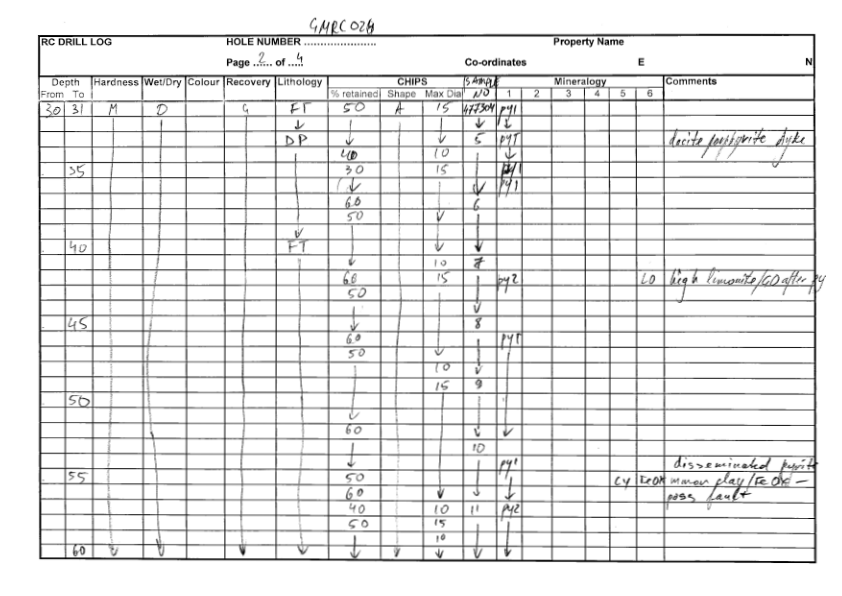 GMRC024
RC DRILL LOG HOLE NUMBER ........................ Property Name
Page ..2... of ..4 Co-ordinates E N
Depth Hardness Wet/Dry Colour Recovery Lithology CHIPS SAMPLE Mineralogy Comments
From To % retained Shape Max Dia NO 1 2 3 4 5 6
30 31 M D G FT 50 A 15 477304 py1
↓ ↓ ↓
DP ↓ ↓ 5 pyT dacite porphyrite dyke
40 10 ↓
35 30 15 py1
↓ ↓ py1
60 6
50 ↓
↓
40 FT ↓ ↓
↓ 10 7
60 15 py2 LO high limonite/GO after py
50
↓
45 ↓ 8
60 pyT
50 ↓
10 ↓
15 9
50
↓
60 ↓ ↓
10
↓ py1 disseminated pyrite
55 50 CY FeOx clay/FeOx –
60 ↓ ↓ ↓ poss fault
40 10 11 py2
50 15
10
60 ↓ ↓ ↓ ↓ ↓ ↓ ↓ ↓ ↓